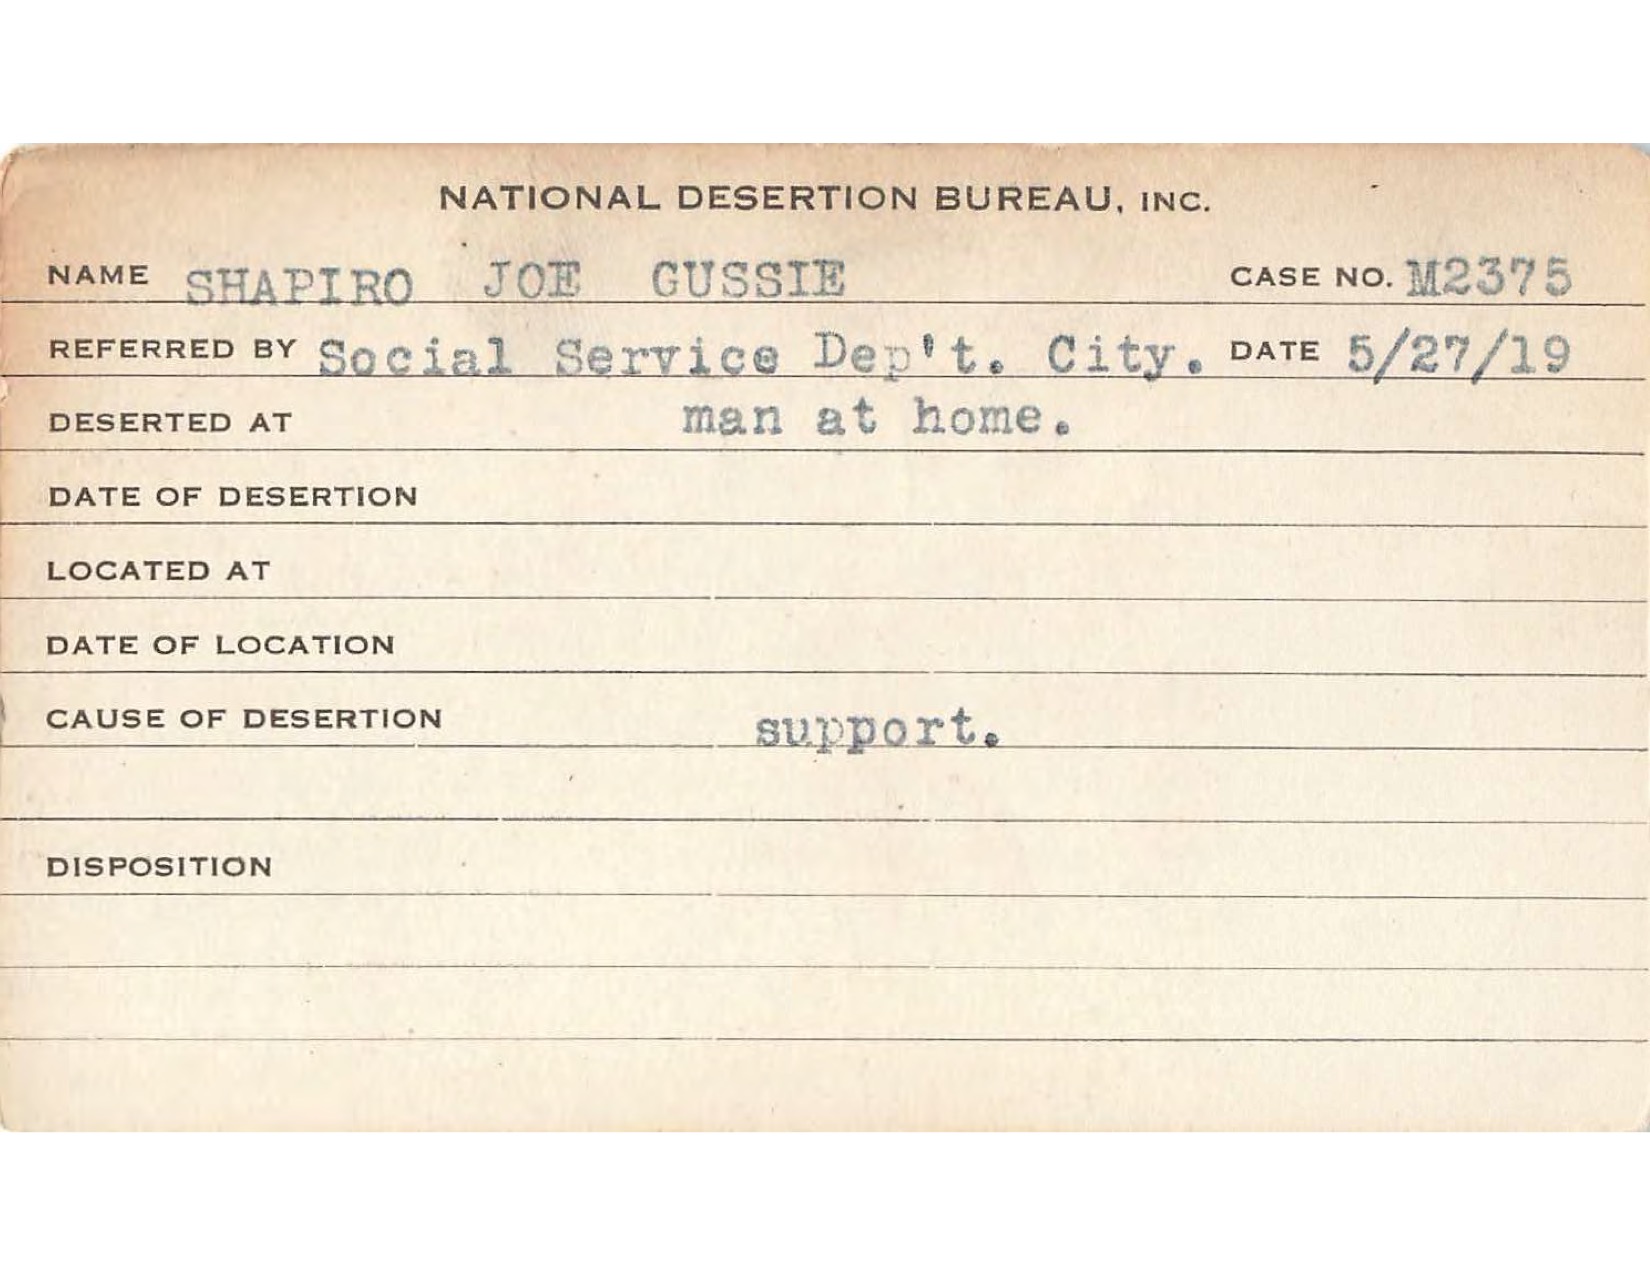 NATIONAL DESERTION BUREAU, INC.
NAME SHAPIRO JOE GUSSIE CASE NO. M2375
REFERRED BY Social Service Dep't. City. DATE 5/27/19
DESERTED AT man at home.
DATE OF DESERTION
LOCATED AT
DATE OF LOCATION
CAUSE OF DESERTION support.
DISPOSITION